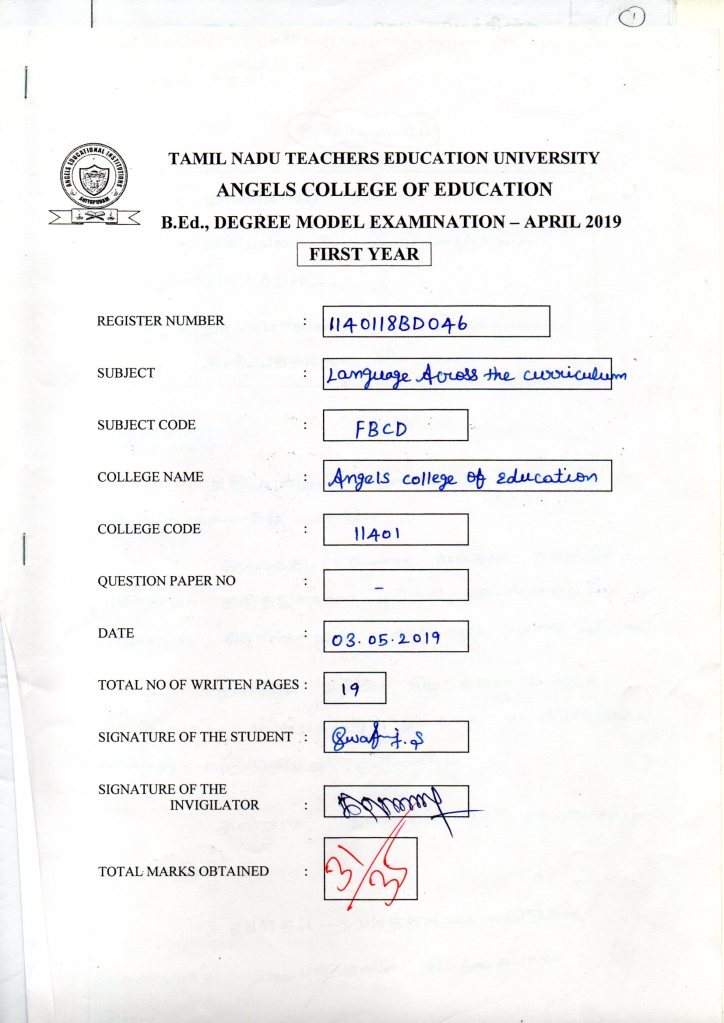 1
ANGELS EDUCATIONAL INSTITUTIONS
TAMIL NADU TEACHERS EDUCATION UNIVERSITY
ANGELS COLLEGE OF EDUCATION
B.Ed., DEGREE MODEL EXAMINATION – APRIL 2019
FIRST YEAR
REGISTER NUMBER : 1140118BD046
SUBJECT : Language Across the curriculum
SUBJECT CODE : FBCD
COLLEGE NAME : Angels college of education
COLLEGE CODE : 11401
QUESTION PAPER NO : -
DATE : 03.05.2019
TOTAL NO OF WRITTEN PAGES : 19
SIGNATURE OF THE STUDENT :
SIGNATURE OF THE
INVIGILATOR :
TOTAL MARKS OBTAINED : 31/35